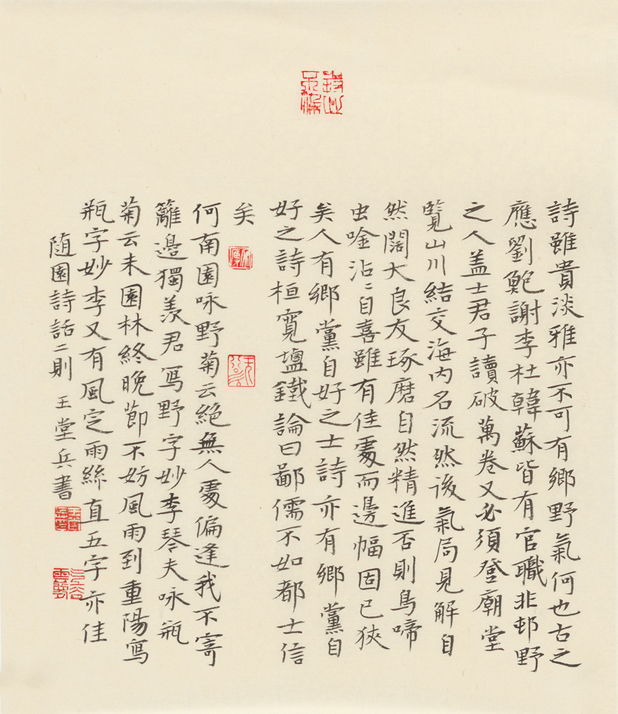 詩雖貴淡雅亦不可有鄉野氣何也古之
應劉鮑謝李杜韓蘇皆有官職非邨野
之人盖士君子讀破萬卷又必須登廟堂
覽山川結交海内名流然後氣局見解自
然闊大良友琢磨自然精進否則鳥啼
虫唫沾〻自喜雖有佳處而邊幅固已狹
矣人有鄉黨自好之士詩亦有鄉黨自
好之詩桓寬塩鐵論曰鄙儒不如都士信
矣
何南園咏野菊云絶無人處偏逢我不寄
籬邊獨羨君寫野字妙李琴夫咏瓶
菊云未園林終晚節不妨風雨到重陽寫
瓶字妙李又有風定雨絲直五字亦佳
随園詩話二則 王堂兵書